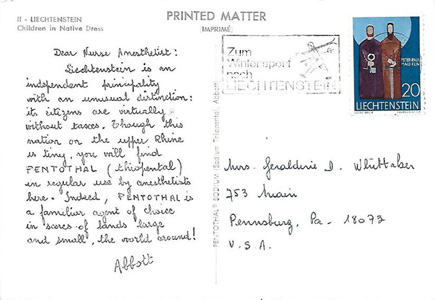 II - LIECHTENSTEIN
Children in Native Dress
PRINTED MATTER
(IMPRIMÉ)
Dear Nurse Anesthetist:
Liechtenstein is an
independent principality
with an unusual distinction:
its citizens are virtually
without taxes. Though this
nation on the upper Rhine
is tiny, you will find
PENTOTHAL (thiopental)
in regular use by anesthetists
here. Indeed, PENTOTHAL is
a familiar agent of choice
in scores of lands large
and small, the world around!
Abbott
PENTOTHAL SODIUM (Sodium Thiopental, Abbott)
Zum
Wintersport
nach
LIECHTENSTEIN
20
LIECHTENSTEIN
Mrs. Geraldine D. Whittaker
753 Main
Pennsburg, Pa - 18073
U.S.A.